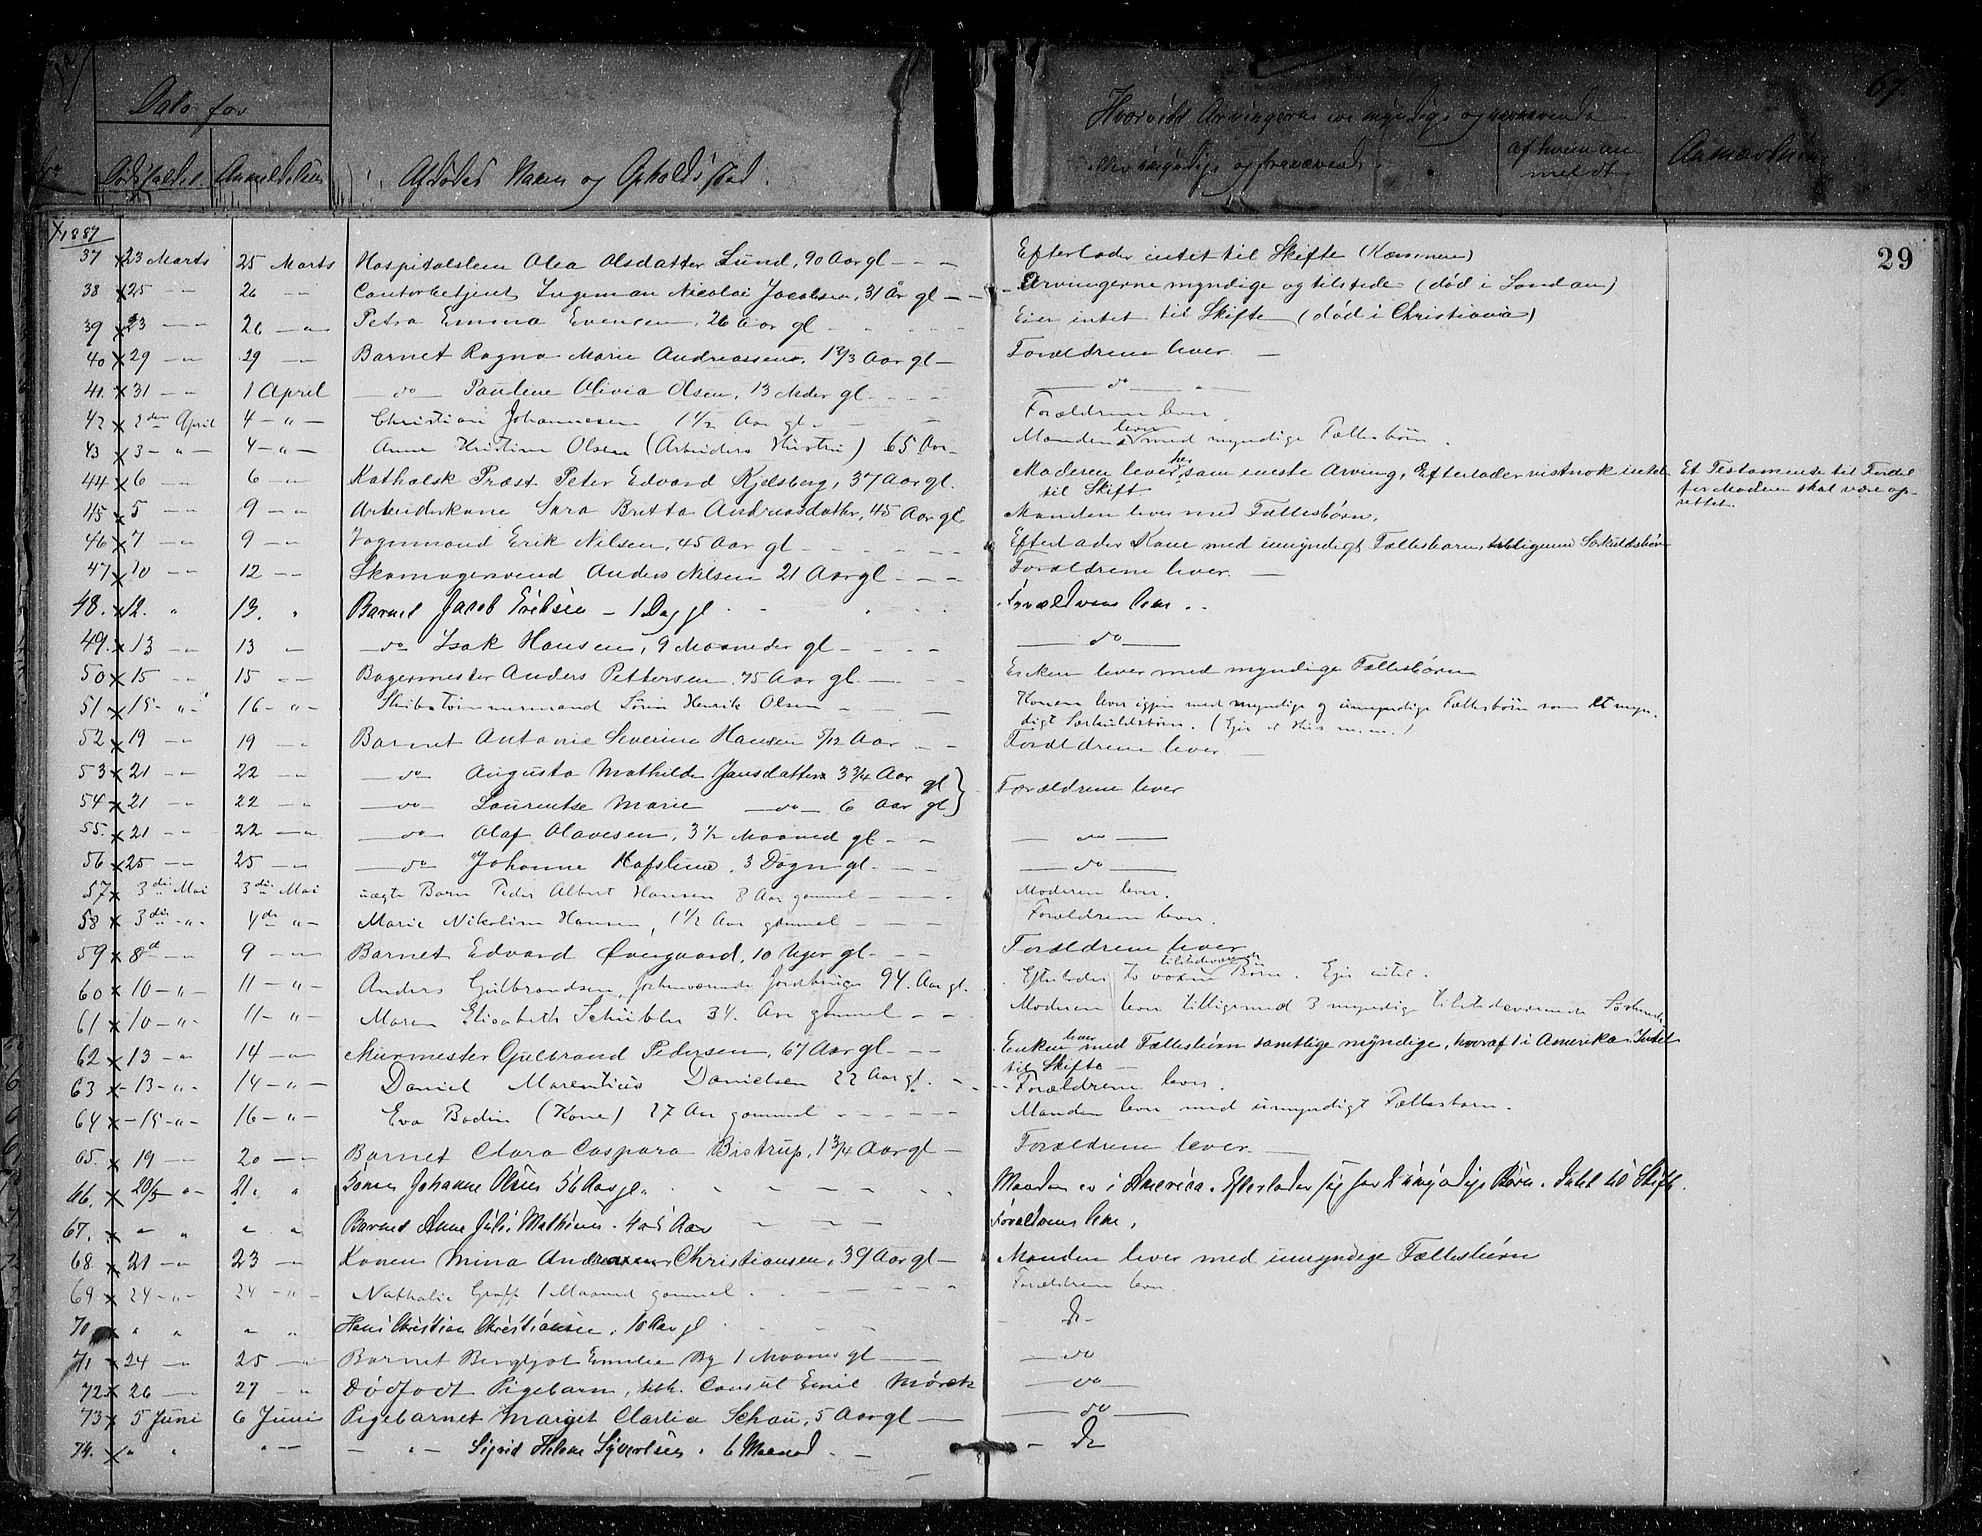 Dato for
Dødsfaldet Anmeldelsen Afdødes Navn og Opholdssted. Hvorvidt Arvingerne ere myndige og nærværende af hvem anmeldt Anmærkning
69.
29
1887
37 23 Marts 25 Marts Hospitalslem Olea Olsdatter Lund, 90 Aar gl Efterlader intet til Skifte
38 25 26 Contorbetjent Ingeman Nicolai Jacobsen, 31 År gl Arvingerne myndige og tilstede (død i London)
39 23 26 Petra Emma Evensen, 26 Aar gl Eier intet til Skifte (død i Christiania)
40 29 29 Barnet Ragna Marie Andreassen, 1 2/3 Aar gl Forældrene lever
41. 31 1 April do Pauline Olivia Olsen, 13 Mdr gl do
42 2den April 4 Christian Johannesen 1 1/2 Aar gl. Forældrene lever.
43 3 4 Anne Kristine Olsen (Arbeiders Hustru) 65 Aar Manden lever med myndige Fællesbørn.
44 6 6 Katholsk Præst Peter Edvard Kjelsberg, 37 Aar gl. Moderen lever her som eneste Arving, Efterlader vistnok intet Et Testamente til Fordel
til Skift for Moderen skal være op-
rettet.
45 5 9 Arbeiderkone Sara Britta Andreasdatter, 45 Aar gl. Manden lever med Fællesbørn.
46 7 9 Vognmand Erik Nilsen, 45 Aar gl Efterlader Kone med umyndigt Fællesbarn, tilligemed Særkuldsbørn
47 10 12 Skomagersvend Anders Nilsen 21 Aar gl Forældrene lever.
48. 12. 13. Barnet Jacob Eriksen - 1 Dag gl Forældrene lever.
49. 13 13 do Isak Hansen, 9 Maaneder gl do
50 15 15 Bagermester Anders Pettersen, 75 Aar gl. Enken lever med myndige Fællesbørn
51 15 16 Skibstømmermand Søren Henrik Olsen Konen lever igjen med myndige og umyndige Fællesbørn samt et myn-
digt Særkuldsbarn. (Ejer et Hus m.m.)
52 19 19 Barnet Antonie Severine Hansen 5/12 Aar Forældrene lever
53 21 22 do Augusta Mathilde Jansdatter 3 3/4 Aar gl Forældrene lever
54 21 22 do Laurentse Marie do 6 Aar gl
55. 21 22 do Olaf Olavesen, 3 1/2 Maaned gl do
56 25 25 do Johanne Hafslund, 3 Døgn gl. do
57 3die Mai 3die Mai uægte Barn Peder Albert Hansen 8 Aar gammel Moderen lever.
58 3die 4de Marie Nikoline Hansen, 1 1/2 Aar gammel Forældrene lever.
59 8d 9 Barnet Edvard Øvergaard, 10 Uger gl. Forældrene lever
60 10 11 Anders Gulbrandsen, forhenværende 94 Aar gl. Efterlader to voxne tilstedeværende Børn. Ejer intet.
61 10 11 Maren Elisabeth Schübler 34. Aar gammel Moderen lever tilligemed 3 myndige tilstedeværende
62 13 14 Murmester Gulbrand Pedersen, 67 Aar gl. Enken lever med Fællesbørn samtlige myndige, hvoraf 1 i Amerika. Intet
til Skifte
63 13 14 Daniel Marentius Danielsen 22 Aar gl. Forældrene lever.
64 15 16 Eva Bodin (Kone) 27 Aar gammel Manden lever med umyndigt Fællesbarn.
65. 19 20 Barnet Clara Caspara Bistrup, 1 3/4 Aar gl Forældrene lever
66. 20/5 21. Konen Johanne Olsen 56 Aar gl. Manden er i America. Efterlader sig umyndige Børn. Intet til Skifte.
67. Barnet Anne Mathisen. 4 Aar Forældrene lever.
68 21 23 Konen Mina Christiansen, 39 Aar gl Manden lever med umyndige Fællesbørn
69 24 24 Nathalie Graff 1 Maaned gammel Forældrene lever.
70 Hans Christian Christiansen. 10 Aar gl do
71 24 25 Barnet Bergljot Emilie By 1 Maaned gl do
72 26 27 Dødfødt Pigebarn, Consul Emil Mørch do
73 5 Juni 6 Juni Pigebarnet Margit Clarlia Schau, 5 Aar gl do
74. Sigrid Helene Syvertsen. 6 Maaned do